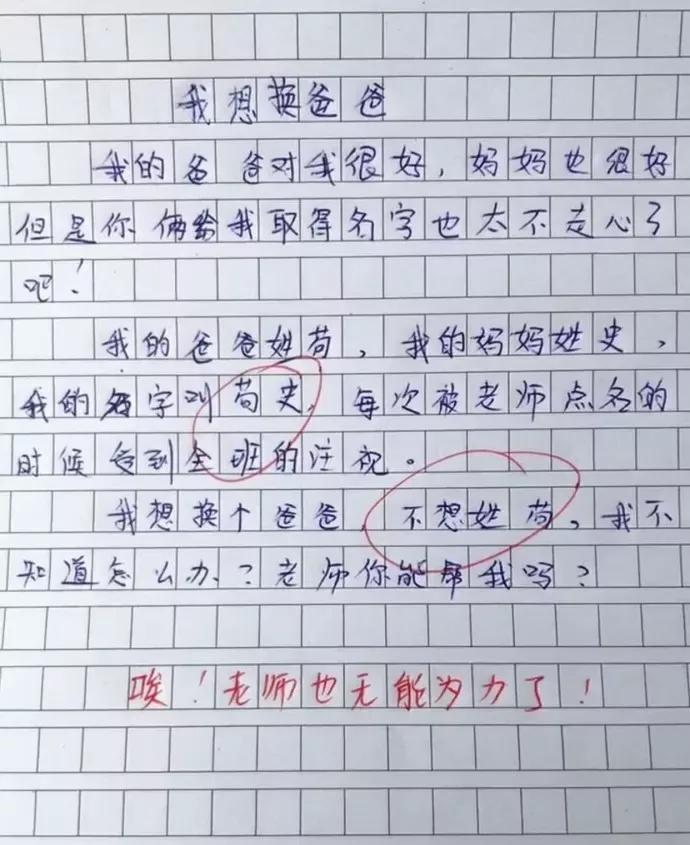 我想换爸爸
我的爸爸对我很好，妈妈也很好
但是你俩给我取得名字也太不走心了
吧！
我的爸爸姓苟，我的妈妈姓史，
我的名字叫苟史，每次被老师点名的
时候受到全班的注视。
我想换个爸爸，不想姓苟，我不
知道怎么办？老师你能帮我吗？
唉！老师也无能为力了！